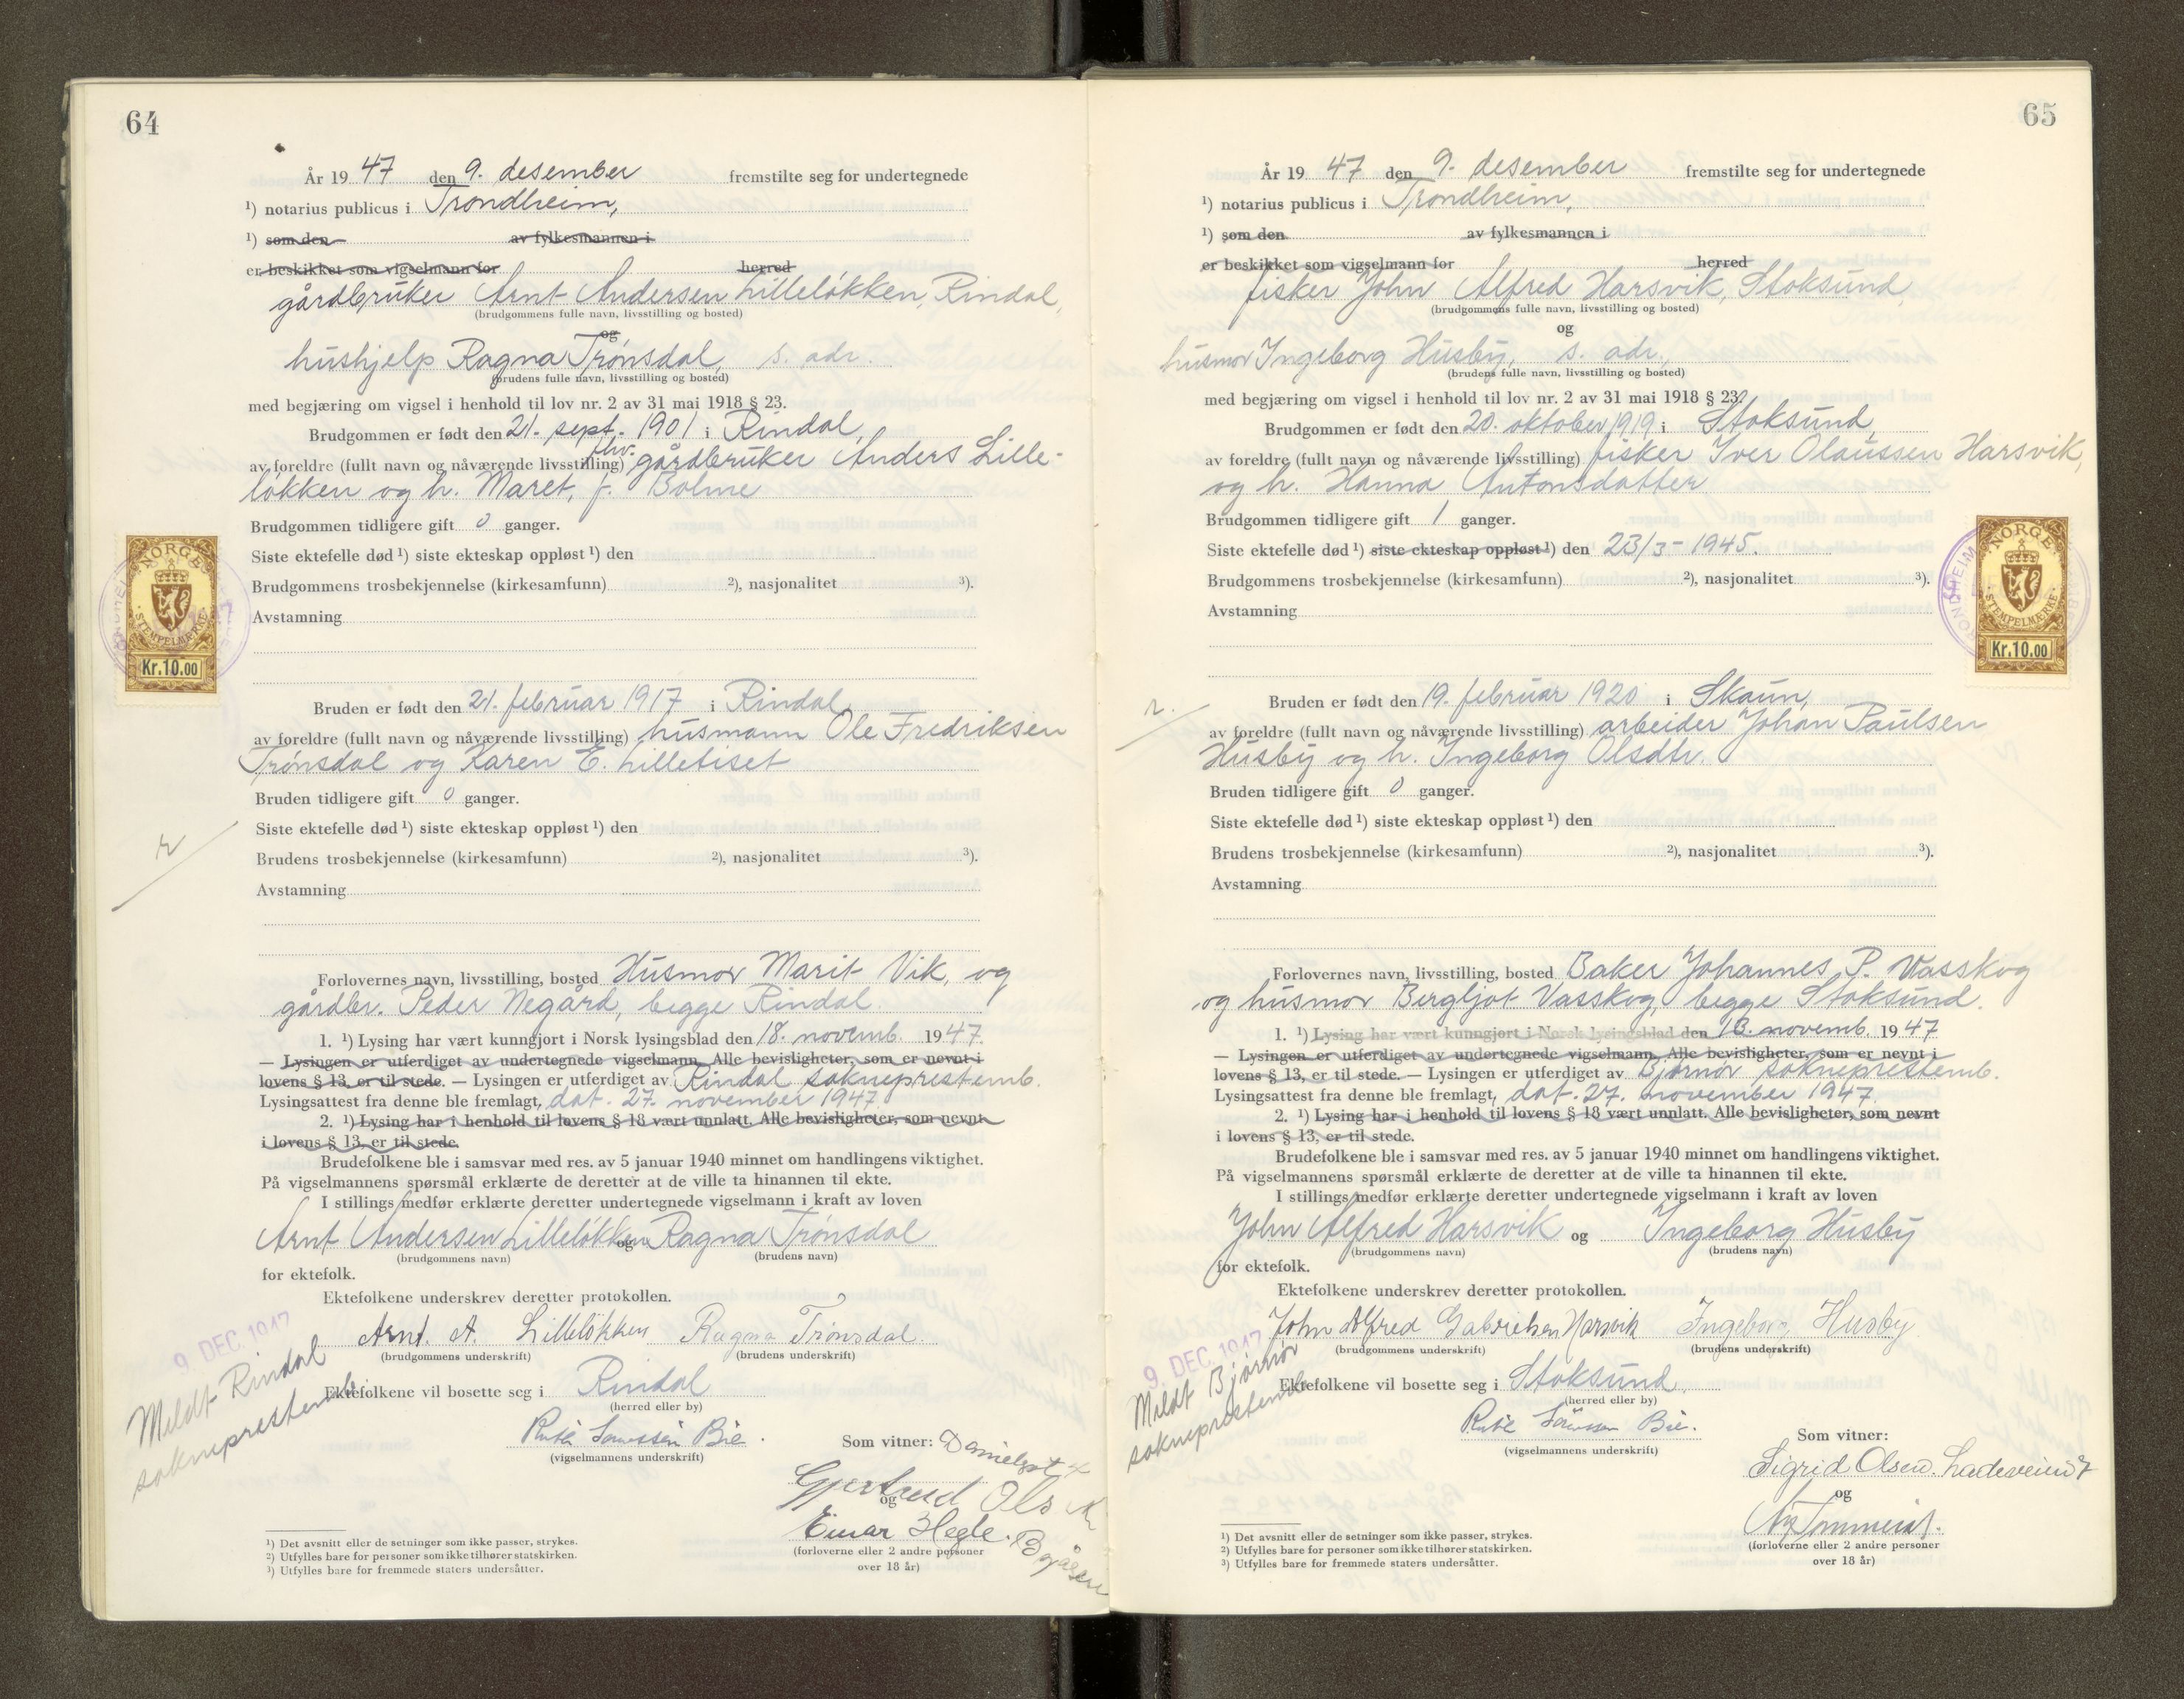 64
År 19 47 den 9. desember fremstilte seg for undertegnede
¹) notarius publicus i Trondheim,
¹) som den av fylkesmannen i
er beskikket som vigselmann for herred
gårdbruker Arnt Andersen Lilleløkken, Rindal,
(brudgommens fulle navn, livsstilling og bosted)
og
hushjelp Ragna Trønsdal, s. adr.
(brudens fulle navn, livsstilling og bosted)
med begjæring om vigsel i henhold til lov nr. 2 av 31 mai 1918 § 23.
Brudgommen er født den 21. sept. 1901 i Rindal,
av foreldre (fullt navn og nåværende livsstilling) fhv. gårdbruker Anders Lille-
løkken og h. Maret, f. Bolme
Brudgommen tidligere gift 0 ganger.
Siste ektefelle død ¹) siste ekteskap oppløst ¹) den
Brudgommens trosbekjennelse (kirkesamfunn) ²), nasjonalitet ³).
Avstamning
NORGE
STEMPELMÆRKE
Kr.10.00
Bruden er født den 21. februar 1917 i Rindal
av foreldre (fullt navn og nåværende livsstilling) husmann Ole Fredriksen
Trønsdal og Karen E. Lilletiset
Bruden tidligere gift 0 ganger.
Siste ektefelle død ¹) siste ekteskap oppløst ¹) den
Brudens trosbekjennelse (kirkesamfunn) ²), nasjonalitet ³).
Avstamning
Forlovernes navn, livsstilling, bosted Husmor Marit Vik, og
gårdbr. Peder Negård, begge Rindal.
1. ¹) Lysing har vært kunngjort i Norsk lysingsblad den 18. novemb. 1947.
— Lysingen er utferdiget av undertegnede vigselmann. Alle bevisligheter, som er nevnt i
lovens § 13, er til stede. — Lysingen er utferdiget av Rindal sokneprestemb.
Lysingsattest fra denne ble fremlagt, dat. 27. november 1947
2. ¹) Lysing har i henhold til lovens § 18 vært unnlatt. Alle bevisligheter, som nevnt
i lovens § 13, er til stede.
Brudefolkene ble i samsvar med res. av 5 januar 1940 minnet om handlingens viktighet.
På vigselmannens spørsmål erklærte de deretter at de ville ta hinannen til ekte.
I stillings medfør erklærte deretter undertegnede vigselmann i kraft av loven
Arnt Andersen Lilleløkken og Ragna Trønsdal
(brudgommens navn) (brudens navn)
for ektefolk.
Ektefolkene underskrev deretter protokollen.
9. DEC. 1947
Arnt. A. Lilleløkken Ragna Trønsdal
(brudgommens underskrift) (brudens underskrift)
Meldt Rindal
sokneprestemb.
Ektefolkene vil bosette seg i Rindal
(herred eller by)
Bie.
(vigselmannens underskrift)
Som vitner:
Gjertrud
og
Einar Hegle.
(forloverne eller 2 andre personer
over 18 år)
¹) Det avsnitt eller de setninger som ikke passer, strykes.
²) Utfylles bare for personer som ikke tilhører statskirken.
³) Utfylles bare for fremmede staters undersåtter.
65
År 19 47 den 9. desember fremstilte seg for undertegnede
¹) notarius publicus i Trondheim,
¹) som den av fylkesmannen i
er beskikket som vigselmann for herred
fisker John Alfred Harsvik, Stoksund,
(brudgommens fulle navn, livsstilling og bosted)
og
husmor Ingeborg Husby, s. adr.,
(brudens fulle navn, livsstilling og bosted)
med begjæring om vigsel i henhold til lov nr. 2 av 31 mai 1918 § 23.
Brudgommen er født den 20. oktober 1919 i Stoksund,
av foreldre (fullt navn og nåværende livsstilling) fisker Iver Olaussen Harsvik,
og h. Hanna Antonsdatter
Brudgommen tidligere gift 1 ganger.
Siste ektefelle død ¹) siste ekteskap oppløst ¹) den 23/3 - 1945.
Brudgommens trosbekjennelse (kirkesamfunn) ²), nasjonalitet ³).
Avstamning
NORGE
STEMPELMÆRKE
Kr.10.00
Bruden er født den 19. februar 1920 i Skaun,
av foreldre (fullt navn og nåværende livsstilling) arbeider Johan Paulsen
Husby og h. Ingeborg Olsdtr.
Bruden tidligere gift 0 ganger.
Siste ektefelle død ¹) siste ekteskap oppløst ¹) den
Brudens trosbekjennelse (kirkesamfunn) ²), nasjonalitet ³).
Avstamning
Forlovernes navn, livsstilling, bosted Baker Johannes P. Vasskog
og husmor Bergljot Vasskog, begge Stoksund.
1. ¹) Lysing har vært kunngjort i Norsk lysingsblad den 18. novemb. 1947
— Lysingen er utferdiget av undertegnede vigselmann. Alle bevisligheter, som er nevnt i
lovens § 13, er til stede. — Lysingen er utferdiget av Bjørnør sokneprestemb.
Lysingsattest fra denne ble fremlagt, dat. 27. november 1947.
2. ¹) Lysing har i henhold til lovens § 18 vært unnlatt. Alle bevisligheter, som nevnt
i lovens § 13, er til stede.
Brudefolkene ble i samsvar med res. av 5 januar 1940 minnet om handlingens viktighet.
På vigselmannens spørsmål erklærte de deretter at de ville ta hinannen til ekte.
I stillings medfør erklærte deretter undertegnede vigselmann i kraft av loven
John Alfred Harsvik og Ingeborg Husby
(brudgommens navn) (brudens navn)
for ektefolk.
Ektefolkene underskrev deretter protokollen.
9. DEC. 1947
John Alfred Gabrielsen Harsvik Ingeborg Husby
(brudgommens underskrift) (brudens underskrift)
Meldt Bjørnør
sokneprestemb.
Ektefolkene vil bosette seg i Stoksund.
(herred eller by)
Bie.
(vigselmannens underskrift)
Som vitner:
Sigrid Olsen. Ladeveien
og
(forloverne eller 2 andre personer
over 18 år)
¹) Det avsnitt eller de setninger som ikke passer, strykes.
²) Utfylles bare for personer som ikke tilhører statskirken.
³) Utfylles bare for fremmede staters undersåtter.